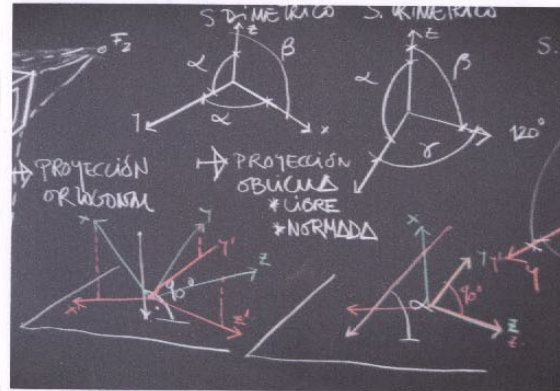 S DIMETRICO
S. TRIMETRICO
S.
F2
z
α
β
α
x
z
α
β
γ
120°
→ PROYECCIÓN
ORTOGONAL
→ PROYECCIÓN
OBLICUA
* LIBRE
* NORMADA
x
y
y'
z
90°
x'
z'
x
y
y'
α
90°
z